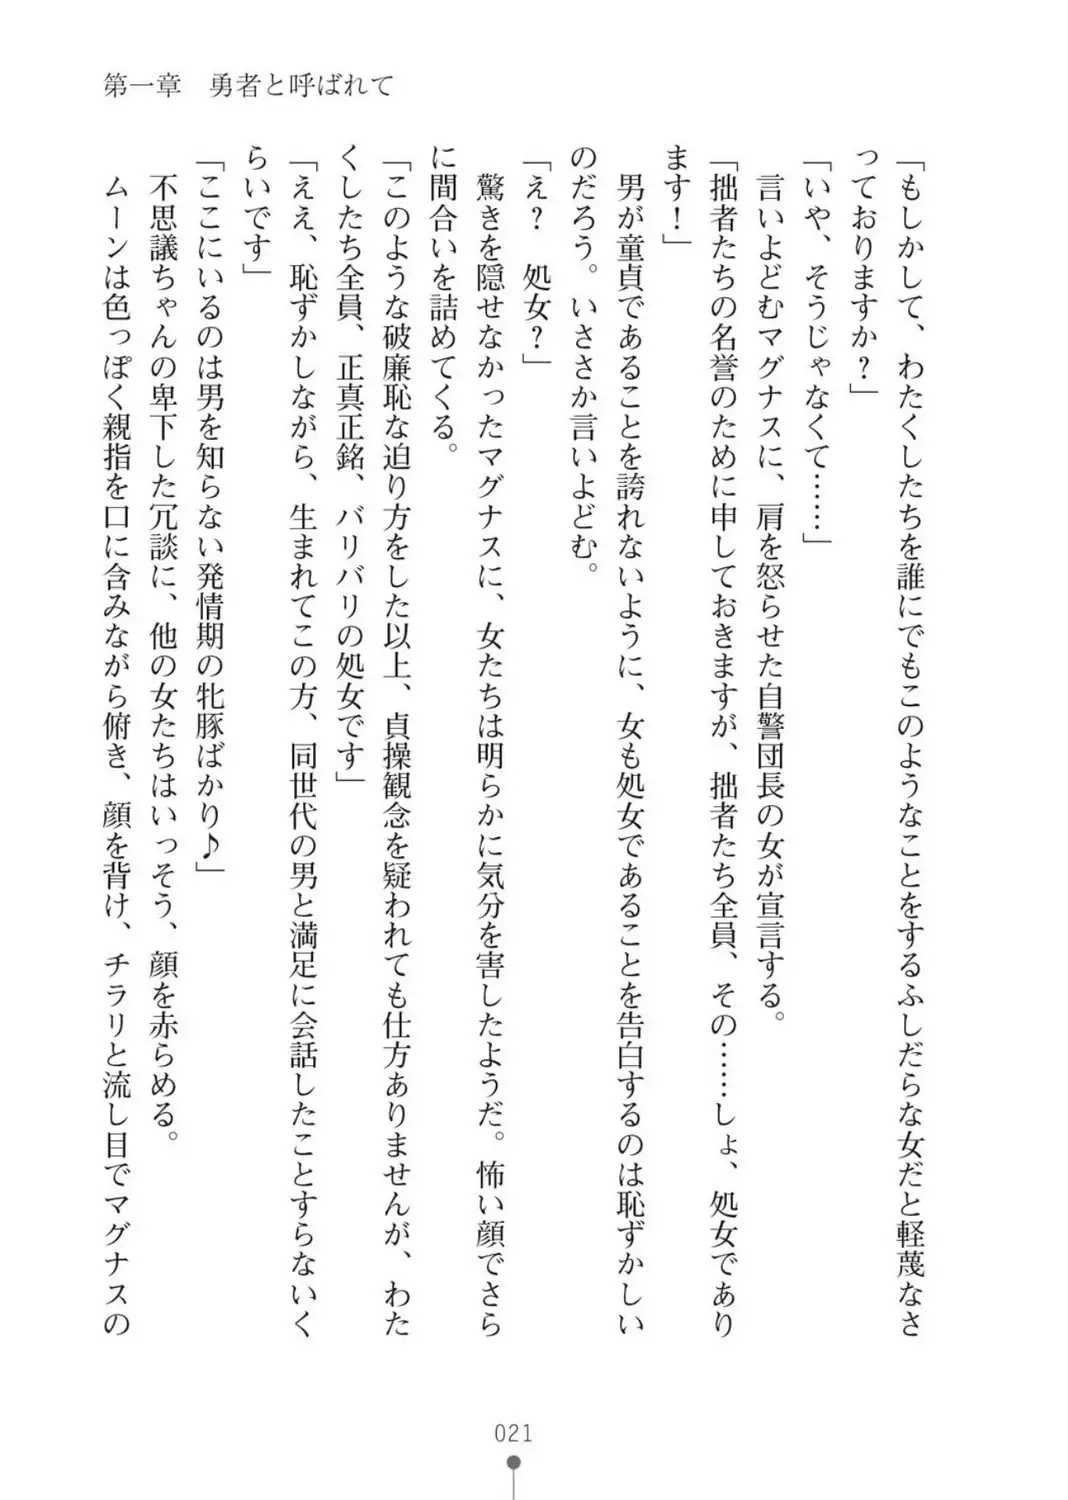 第一章　勇者と呼ばれて
「もしかして、わたくしたちを誰にでもこのようなことをするふしだらな女だと軽蔑なさ
っておりますか？」
「いや、そうじゃなくて……」
　言いよどむマグナスに、肩を怒らせた自警団長の女が宣言する。
「拙者たちの名誉のために申しておきますが、拙者たち全員、その……しょ、処女であり
ます！」
　男が童貞であることを誇れないように、女も処女であることを告白するのは恥ずかしい
のだろう。いささか言いよどむ。
「え？　処女？」
　驚きを隠せなかったマグナスに、女たちは明らかに気分を害したようだ。怖い顔でさら
に間合いを詰めてくる。
「このような破廉恥な迫り方をした以上、貞操観念を疑われても仕方ありませんが、わた
くしたち全員、正真正銘、バリバリの処女です」
「ええ、恥ずかしながら、生まれてこの方、同世代の男と満足に会話したことすらないく
らいです」
「ここにいるのは男を知らない発情期の牝豚ばかり♪」
　不思議ちゃんの卑下した冗談に、他の女たちはいっそう、顔を赤らめる。
　ムーンは色っぽく親指を口に含みながら俯き、顔を背け、チラリと流し目でマグナスの
021